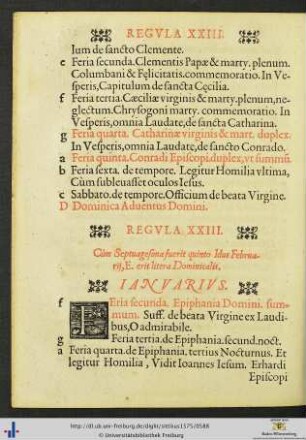 REGVLA XXIII.
lum de sancto Clemente.
e Feria secunda. Clementis Papæ & marty. plenum.
Columbani & Felicitatis.commemoratio. In Ve-
speris, Capitulum de sancta Cęcilia.
f Feria tertia. Cæciliæ virginis & marty.plenum,ne-
glectum. Chrysogoni marty. commemoratio. In
Vesperis,omnia Laudate,de sancta Catharina.
g Feria quarta. Catharinæ virginis & mart. duplex.
In Vesperis,omnia Laudate,de sancto Conrado.
a Feria quinta. Conradi Episcopi.duplex,vt summũ.
b Feria sexta. de tempore. Legitur Homilia vltima,
Cùm subleuasset oculos Iesus.
c Sabbato.de tempore.Officium de beata Virgine.
D Dominica Aduentus Domini.
REGVLA. XXIII.
Cùm Septuagesima fuerit quinto Idus Februa-
rij, E. erit litera Dominicalis.
IANVARIVS.
f Feria secunda. Epiphania Domini. sum-
mum. Suff. de beata Virgine ex Laudi-
bus, O admirabile.
g Feria tertia.de Epiphania.secund.noct.
a Feria quarta.de Epiphania, tertius Nocturnus. Et
legitur Homilia, Vidit Ioannes Iesum. Erhardi
Episcopi
http://dl.ub.uni-freiburg.de/diglit/sittikus1575/0588
© Universitätsbibliothek Freiburg